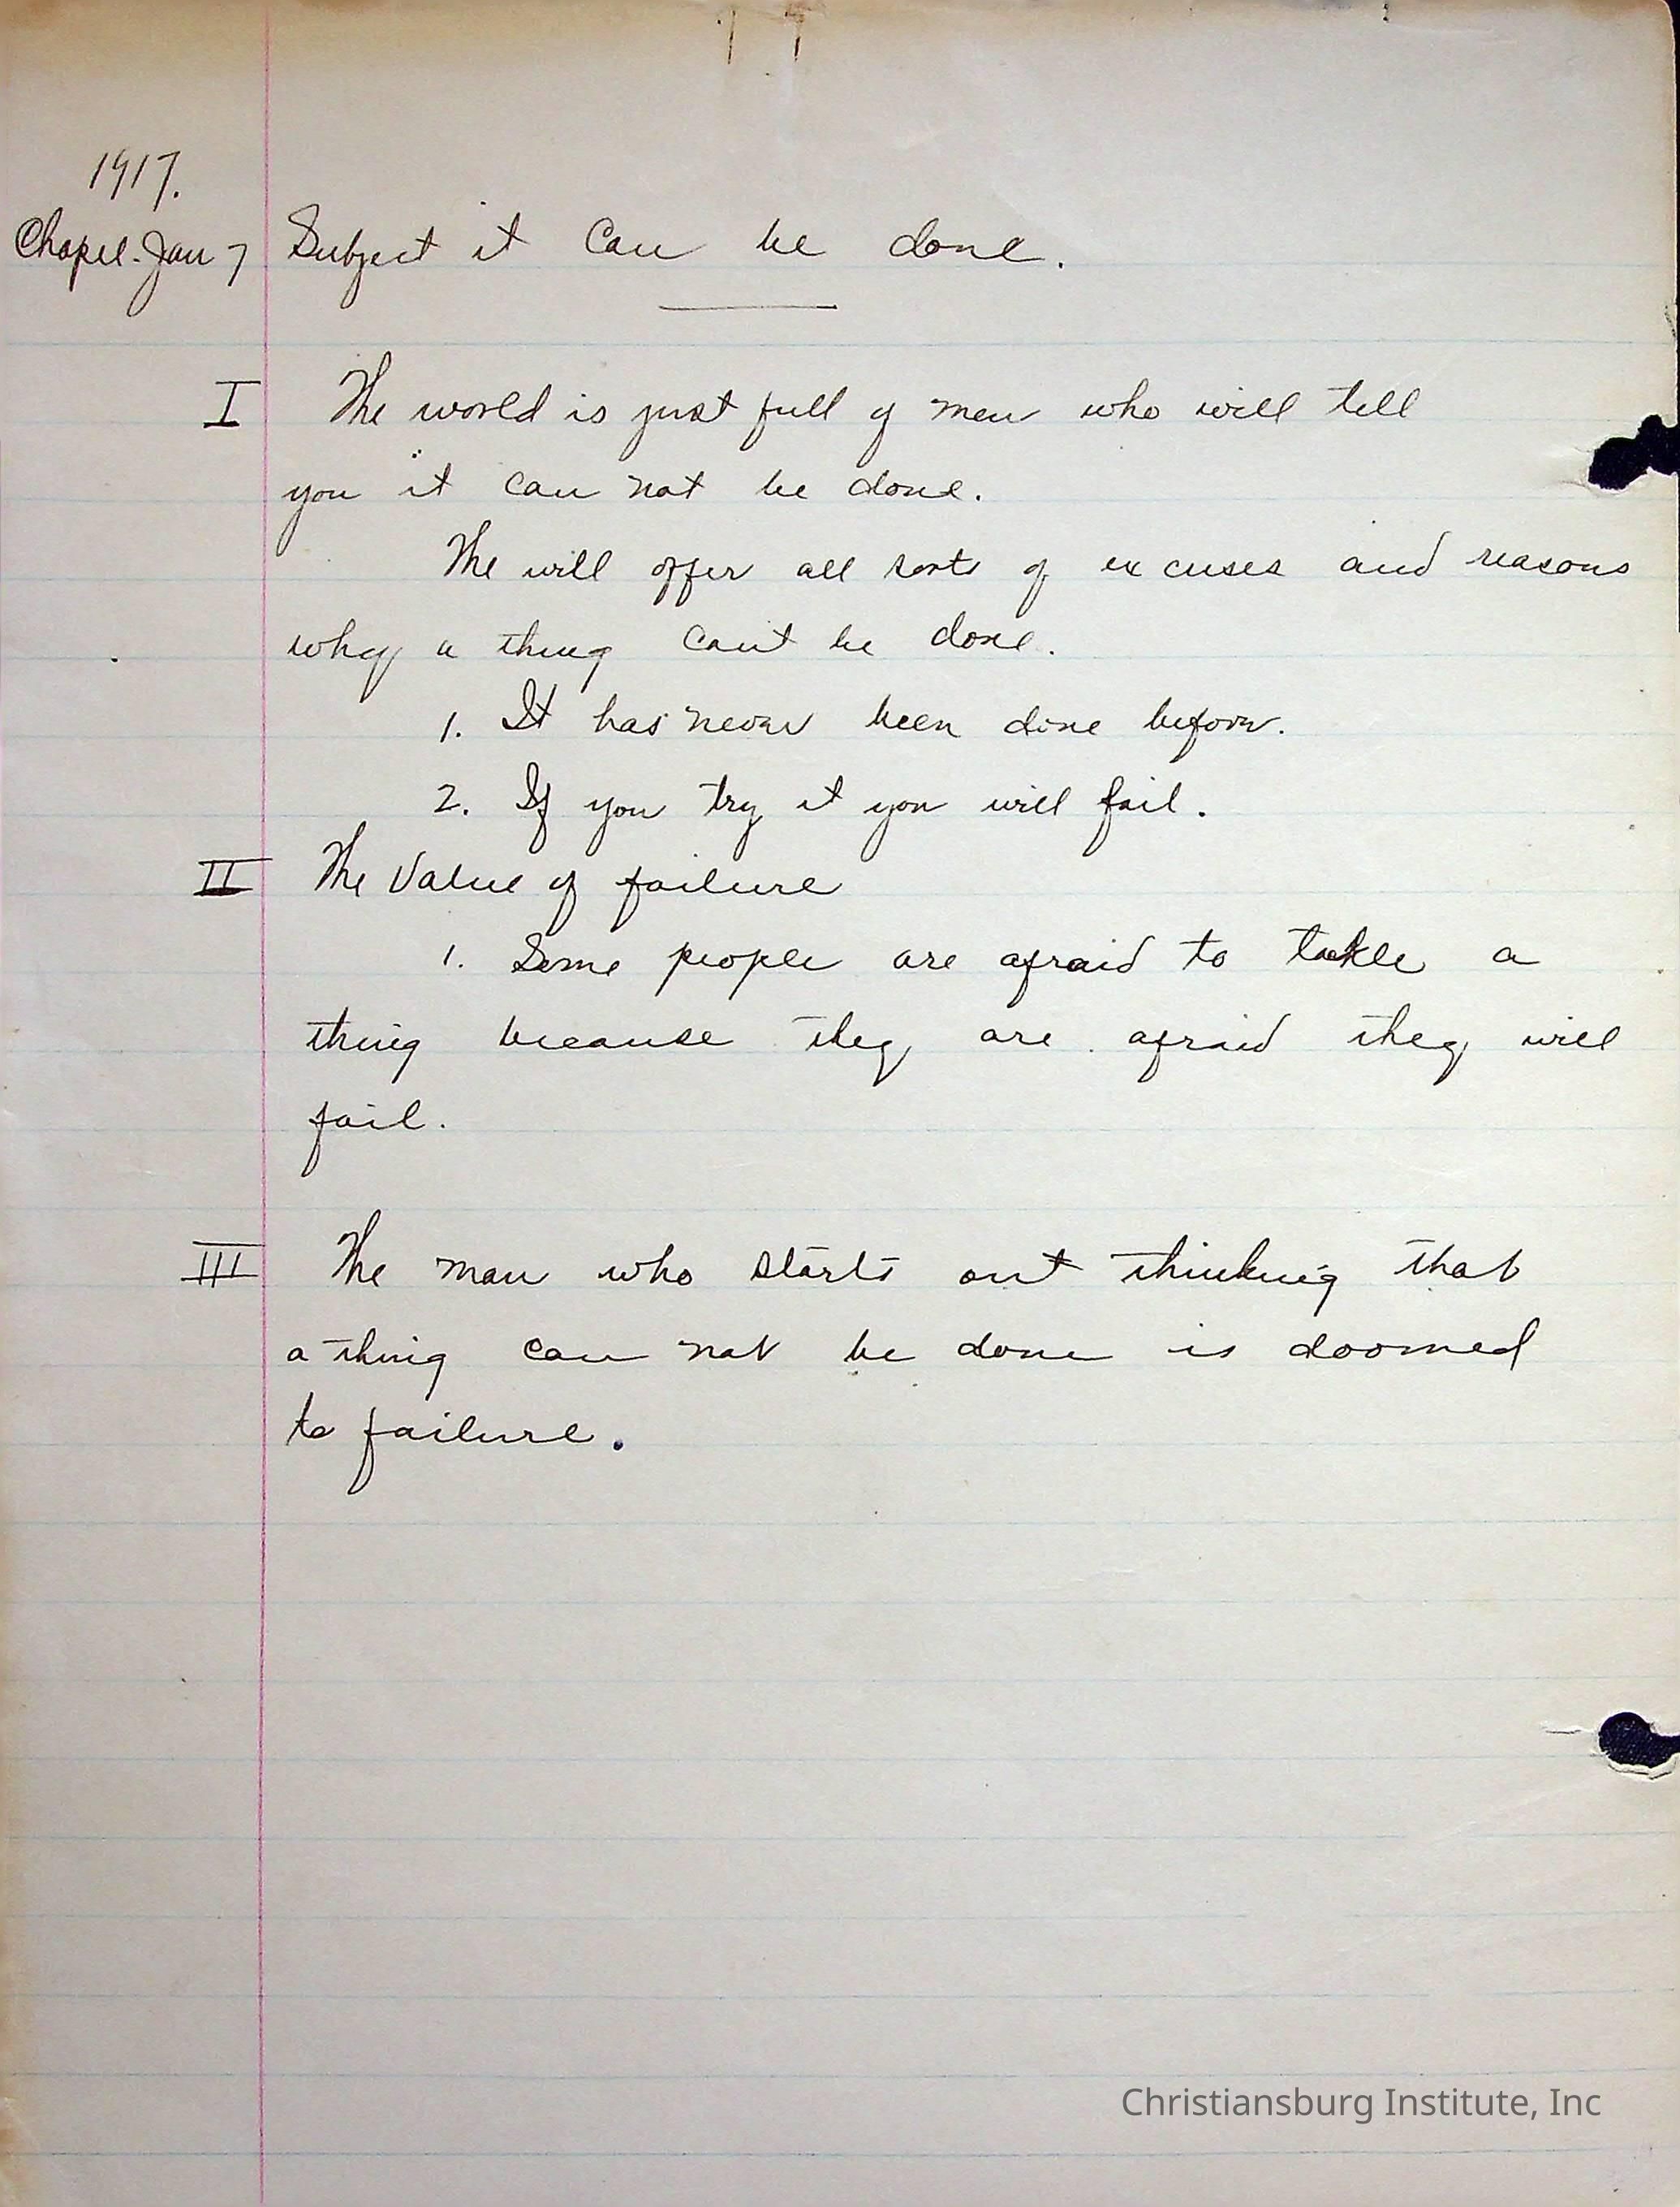 1917.
Chapel. Jan 7 Subject it Can be done.
I The world is just full of men who will tell
you it can not be done.
The will offer all sorts of excuses and reasons
why a thing can't be done.
1. It has never been done before.
2. If you try it you will fail.
II The Value of failure
1. Some people are afraid to takle a
thing because they are afraid they will
fail.
III The man who starts out thinking that
a thing can not be done is doomed
to failure.
Christiansburg Institute, Inc